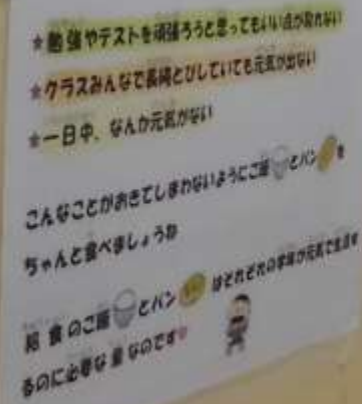 ☆勉強やテストを頑張ろうと思ってもいい点が取れない
☆クラスみんなで長縄とびしていても元気が出ない
☆一日中、なんか元気がない
こんなことがおきてしまわないようにご飯とパンを
ちゃんと食べましょうね
給食のご飯とパンはそれぞれの学年が元気で生活す
るのに必要な量なのです